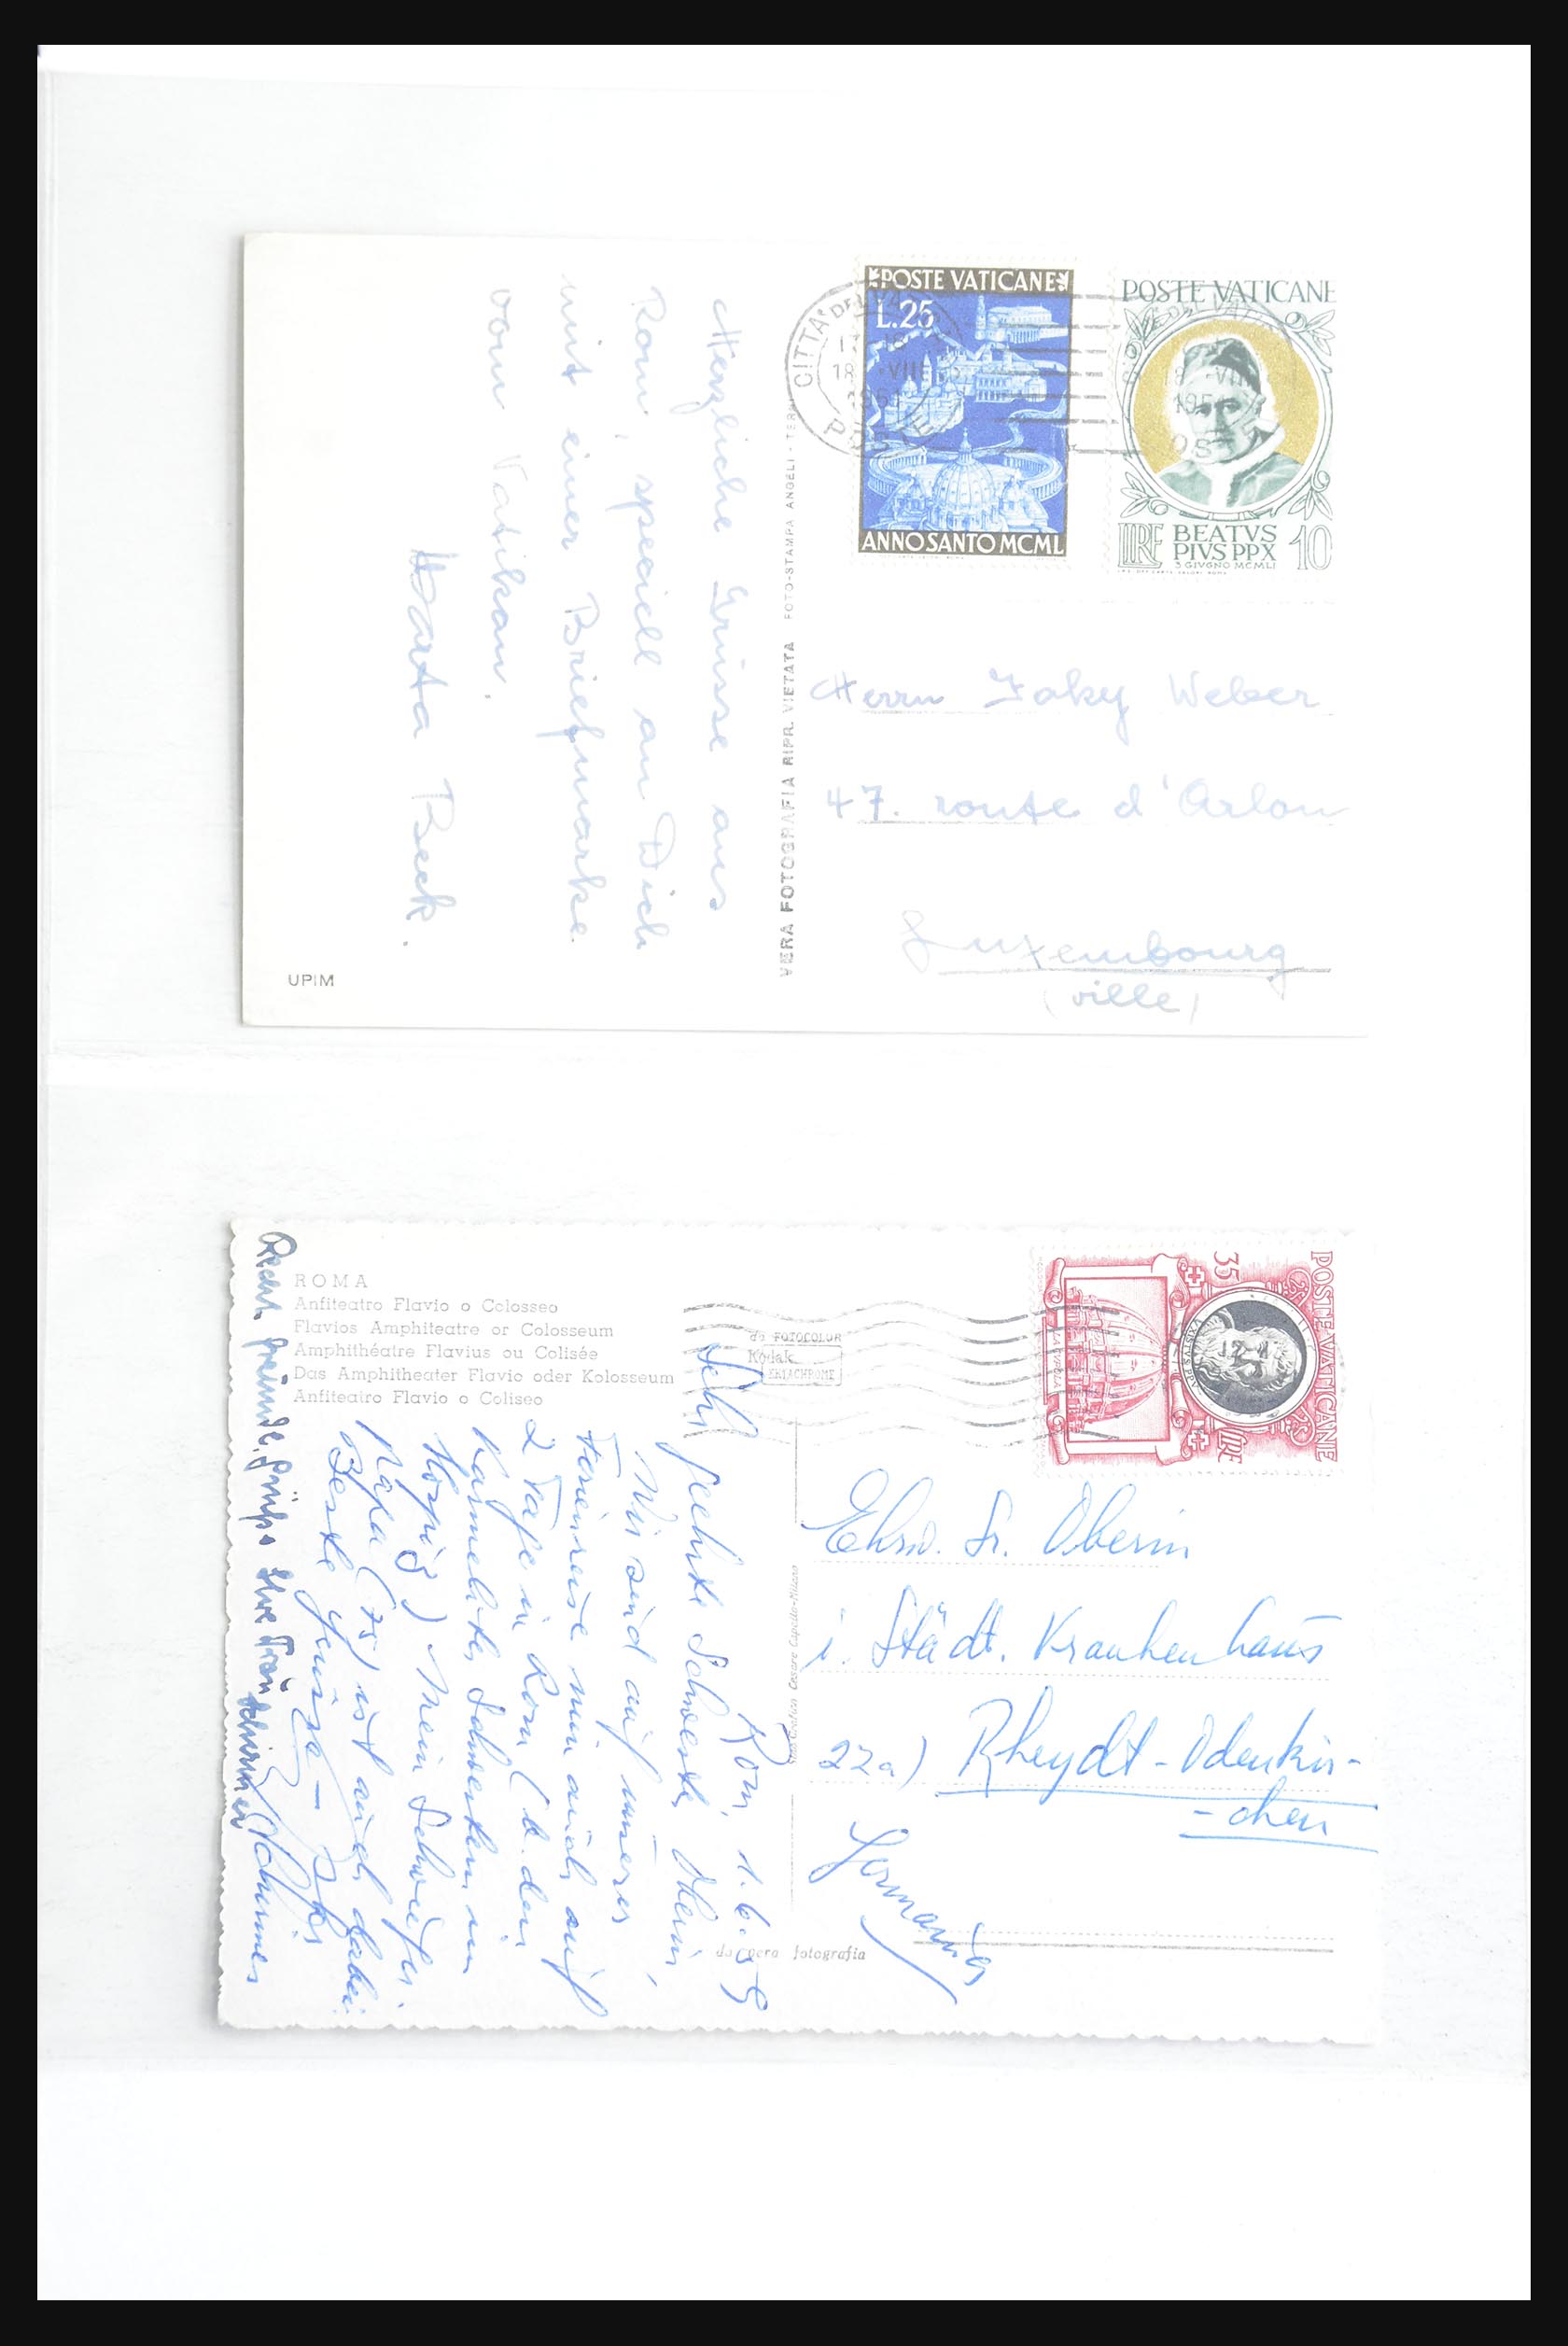 POSTE VATICANE
L.25
ANNO SANTO MCML
POSTE VATICANE
LIRE
BEATVS
PIVS PP X
3 GIVGNO MCMLI
10
CITTA DEL
18 -VII
1951
Herzliche Grüsse aus
Rom, speciell an Dich
mit einer Briefmarke
vom Vatikan.
Marta Beck.
VERA FOTOGRAFIA RIPR. VIETATA FOTO-STAMPA ANGELI - TERNI
Herrn Jaky Weber
47. route d'Arlon
Luxembourg
(ville)
UPIM
ROMA
Anfiteatro Flavio o Colosseo
Flavios Amphiteatre or Colosseum
Amphithéatre Flavius ou Colisée
Das Amphitheater Flavio oder Kolosseum
Anfiteatro Flavio o Coliseo
da FOTOCOLOR
Kodak
EKTACHROME
POSTE VATICANE
35 LIRE
Rom, 1.6.59
Sehr geehrte Schwester Oberin,
Wir sind auf unserer
Ferienreise nun auch auf
2 Tage in Rom (b. den
Karmeliter Schwestern im
Hospiz) Mein Schwieger
Papa (75) ist auch dabei.
Beste Grüsse
Recht freundl. Grüße Ihre Frau
Cesare Capello-Milano
Ehrw. Sr. Oberin
i. Städt. Krankenhaus
22a) Rheydt-Odenkir-
-chen
Germania
da vera fotografia